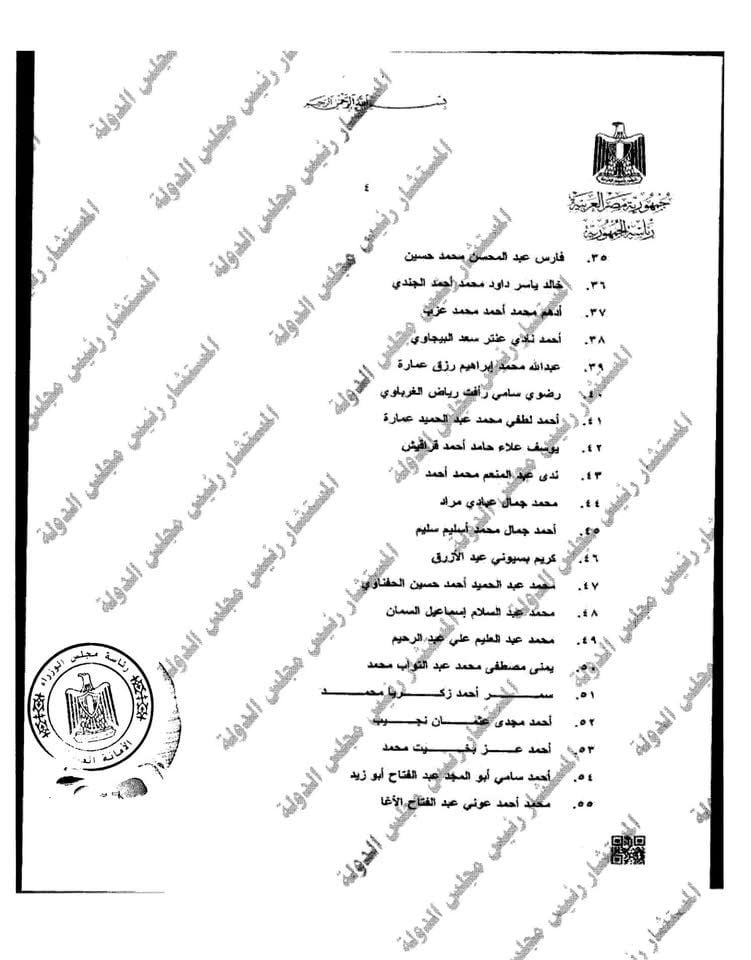 بسم الله الرحمن الرحيم
جمهورية مصر العربية
رئاسة الجمهورية
٤
٣٥. فارس عبد المحسن محمد حسين
٣٦. خالد ياسر داود محمد أحمد الجندي
٣٧. أدهم محمد أحمد محمد عزب
٣٨. أحمد نادي عنتر سعد البيجاوي
٣٩. عبدالله محمد إبراهيم رزق عمارة
٤٠. رضوي سامي رأفت رياض الغرباوي
٤١. أحمد لطفي محمد عبد الحميد عمارة
٤٢. يوسف علاء حامد أحمد قرافيش
٤٣. ندى عبد المنعم محمد أحمد
٤٤. محمد جمال عبادي مراد
٤٥. أحمد جمال محمد أسليم سليم
٤٦. كريم بسيوني عيد الأزرق
٤٧. محمد عبد الحميد أحمد حسين الحفناوي
٤٨. محمد عبد السلام إسماعيل السمان
٤٩. محمد عبد العليم علي عبد الرحيم
٥٠. يمنى مصطفى محمد عبد التواب محمد
٥١. سمـــر أحمد زكـــريا محمـــد
٥٢. أحمد مجدى عثمـــان نجيـــب
٥٣. أحمد عـــز بخـــيت محمد
٥٤. أحمد سامي أبو المجد عبد الفتاح أبو زيد
٥٥. محمد أحمد عوني عبد الفتاح الأغا
رئاسة مجلس الوزراء
الأمانة
المستشار رئيس مجلس الدولة